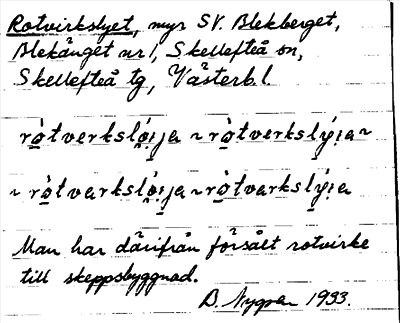 Rotvirkslyet, myr SV. Blekberget,
Blekänget nr 1, Skellefteå sn,
Skellefteå tg, Västerb. l.
rò̱tverksló̱i̯ja ~ rò̱tverkslý̱i̯a ~
~ rò̱tvarksló̱i̯ja ~ rò̱tvarkslý̱i̯a
Man har därifrån försålt rotvirke
till skeppsbyggnad.
B. 1933.